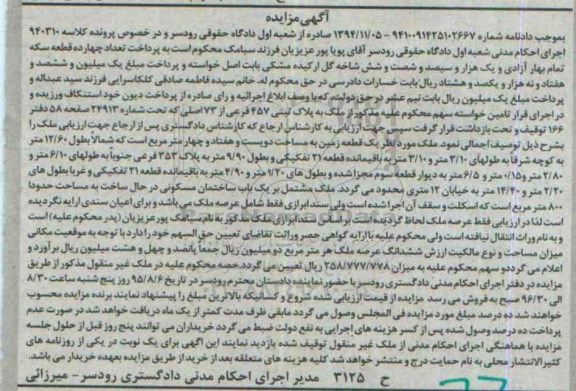 آگهی مزایده
بموجب دادنامه شماره ۹۴۱۰۰۹۱۴۲۵۱۰۲۶۶۷ - ۱۳۹۴/۱۱/۰۵ صادره از شعبه اول دادگاه حقوقی رودسر و در خصوص پرونده کلاسه ۹۴۰۳۱۰
اجرای احکام مدنی شعبه اول دادگاه حقوقی رودسر آقای پویا پور عزیزیان فرزند سیامک محکوم است به پرداخت تعداد چهارده قطعه سکه
تمام بهار آزادی و یک هزار و سیصد و شصت و شش شاخه گل ارکیده مشکی بابت اصل خواسته و پرداخت مبلغ یک میلیون و ششصد و
هفتاد و نه هزار و یکصد و هشتاد ریال بابت خسارات دادرسی در حق محکوم له، خانم سیده فاطمه صادقی کلکاسرایی فرزند سید عبداله و
پرداخت مبلغ یک میلیون ریال بابت نیم عشر در حق دولت که با وصف ابلاغ اجرائیه و رای صادره از پرداخت دیون خود استنکاف ورزیده و
در اجرای قرار تامین خواسته سهم محکوم علیه مذکور از ملک به پلاک ثبتی ۴۵۷ فرعی از ۷۳ اصلی که تحت شماره ۲۴۹۱۳ صفحه ۵۸ دفتر
۱۶۶ توقیف و تحت بازداشت قرار گرفت سپس جهت ارزیابی به کارشناس ارجاع که کارشناس دادگستری پس از ارجاع جهت ارزیابی ملک را
بشرح ذیل توصیف اجمالی نمود. ملک مورد نظر یک قطعه زمین به مساحت دویست و هفتاد و چهار متر مربع است که شمالاً بطول ۱۳/۶۰ متر
به کوچه شرقاً به طولهای ۳/۱۰ متر و ۳/۱۰ متر به باقیمانده قطعه ۳۱ تفکیکی و بطول ۹/۹۰ متر به پلاک ۳۵۳ فرعی جنوباً به طولهای ۶/۱۰ متر و
۲/۸۰ متر و ۰/۱۵ متر و ۶/۵ متر به دیوار قطعه سوم مجزا شده و بطول های ۱/۲۰ متر و ۴/۹۰ متر به باقیمانده قطعه ۳۱ تفکیکی و غربا بطول های
۲/۲۰ متر و ۱۴/۴۰ متر به خیابان ۱۲ متری محدود می گردد. ملک مشتمل بر یک باب ساختمان مسکونی در حال ساخت به مساحت حدودا
۸۰۰ متر مربع است که اسکلت و سقف آن اجرا شده است ولی سند ابرازی فقط شامل عرصه ملک می باشد و برای اعیان سندی ارایه نگردیده
است لذا در ارزیابی فقط عرصه ملک لحاظ گردیده است بر اساس سند ابرازی ملک مذکور به نام سیامک پور عزیزیان (پدر محکوم علیه) است
و به نام وراث انتقال نیافته است ولی محکوم علیه با ارایه گواهی حصر وراثت تقاضای تعیین حق السهم خود را دارد با توجه به موقعیت مکانی
میزان مساحت و نوع مالکیت ارزش ششدانگ عرصه ملک هر متر مربع دو میلیون ریال جمعاً پانصد و چهل و هشت میلیون ریال برآورد و
اعلام می گردد و سهم محکوم علیه به میزان ۲۵۸/۷۷۷/۷۷۸ ریال تعیین می گردد حصه محکوم علیه در ملک غیر منقول مذکور از طریق
مزایده در دفتر اجرای احکام مدنی دادگستری رودسر با حضور نماینده دادستان محترم رودسر در تاریخ ۹۵/۸/۶ روز پنج شنبه ساعت ۸/۳۰
الی ۹/۳۰ صبح به فروش می رسد مزایده از قیمت ارزیابی شده شروع و کسانیکه بالاترین مبلغ را پیشنهاد نمایند برنده مزایده محسوب
خواهند شد ده درصد مبلغ مورد مزایده فی المجلس وصول می گردد مابقی ظرف مدت کمتر از یک ماه دریافت خواهد شد در صورت عدم
پرداخت ده درصد وصول شده پس از کسر هزینه های اجرایی به نفع دولت ضبط می گردد خریداران می توانند پنج روز قبل از حلول جلسه
مزایده با هماهنگی اجرای احکام مدنی از ملک غیر منقول توقیف شده بازدید نمایند این آگهی برای یک نوبت در یکی از روزنامه های
کثیرالانتشار محلی به نام حمایت درج و منتشر خواهد شد کلیه هزینه های متعلقه بعد از خرید از طریق مزایده بعهده خریدار می باشد.
ح ۳۱۲۵ مدیر اجرای احکام مدنی دادگستری رودسر - میرزائی